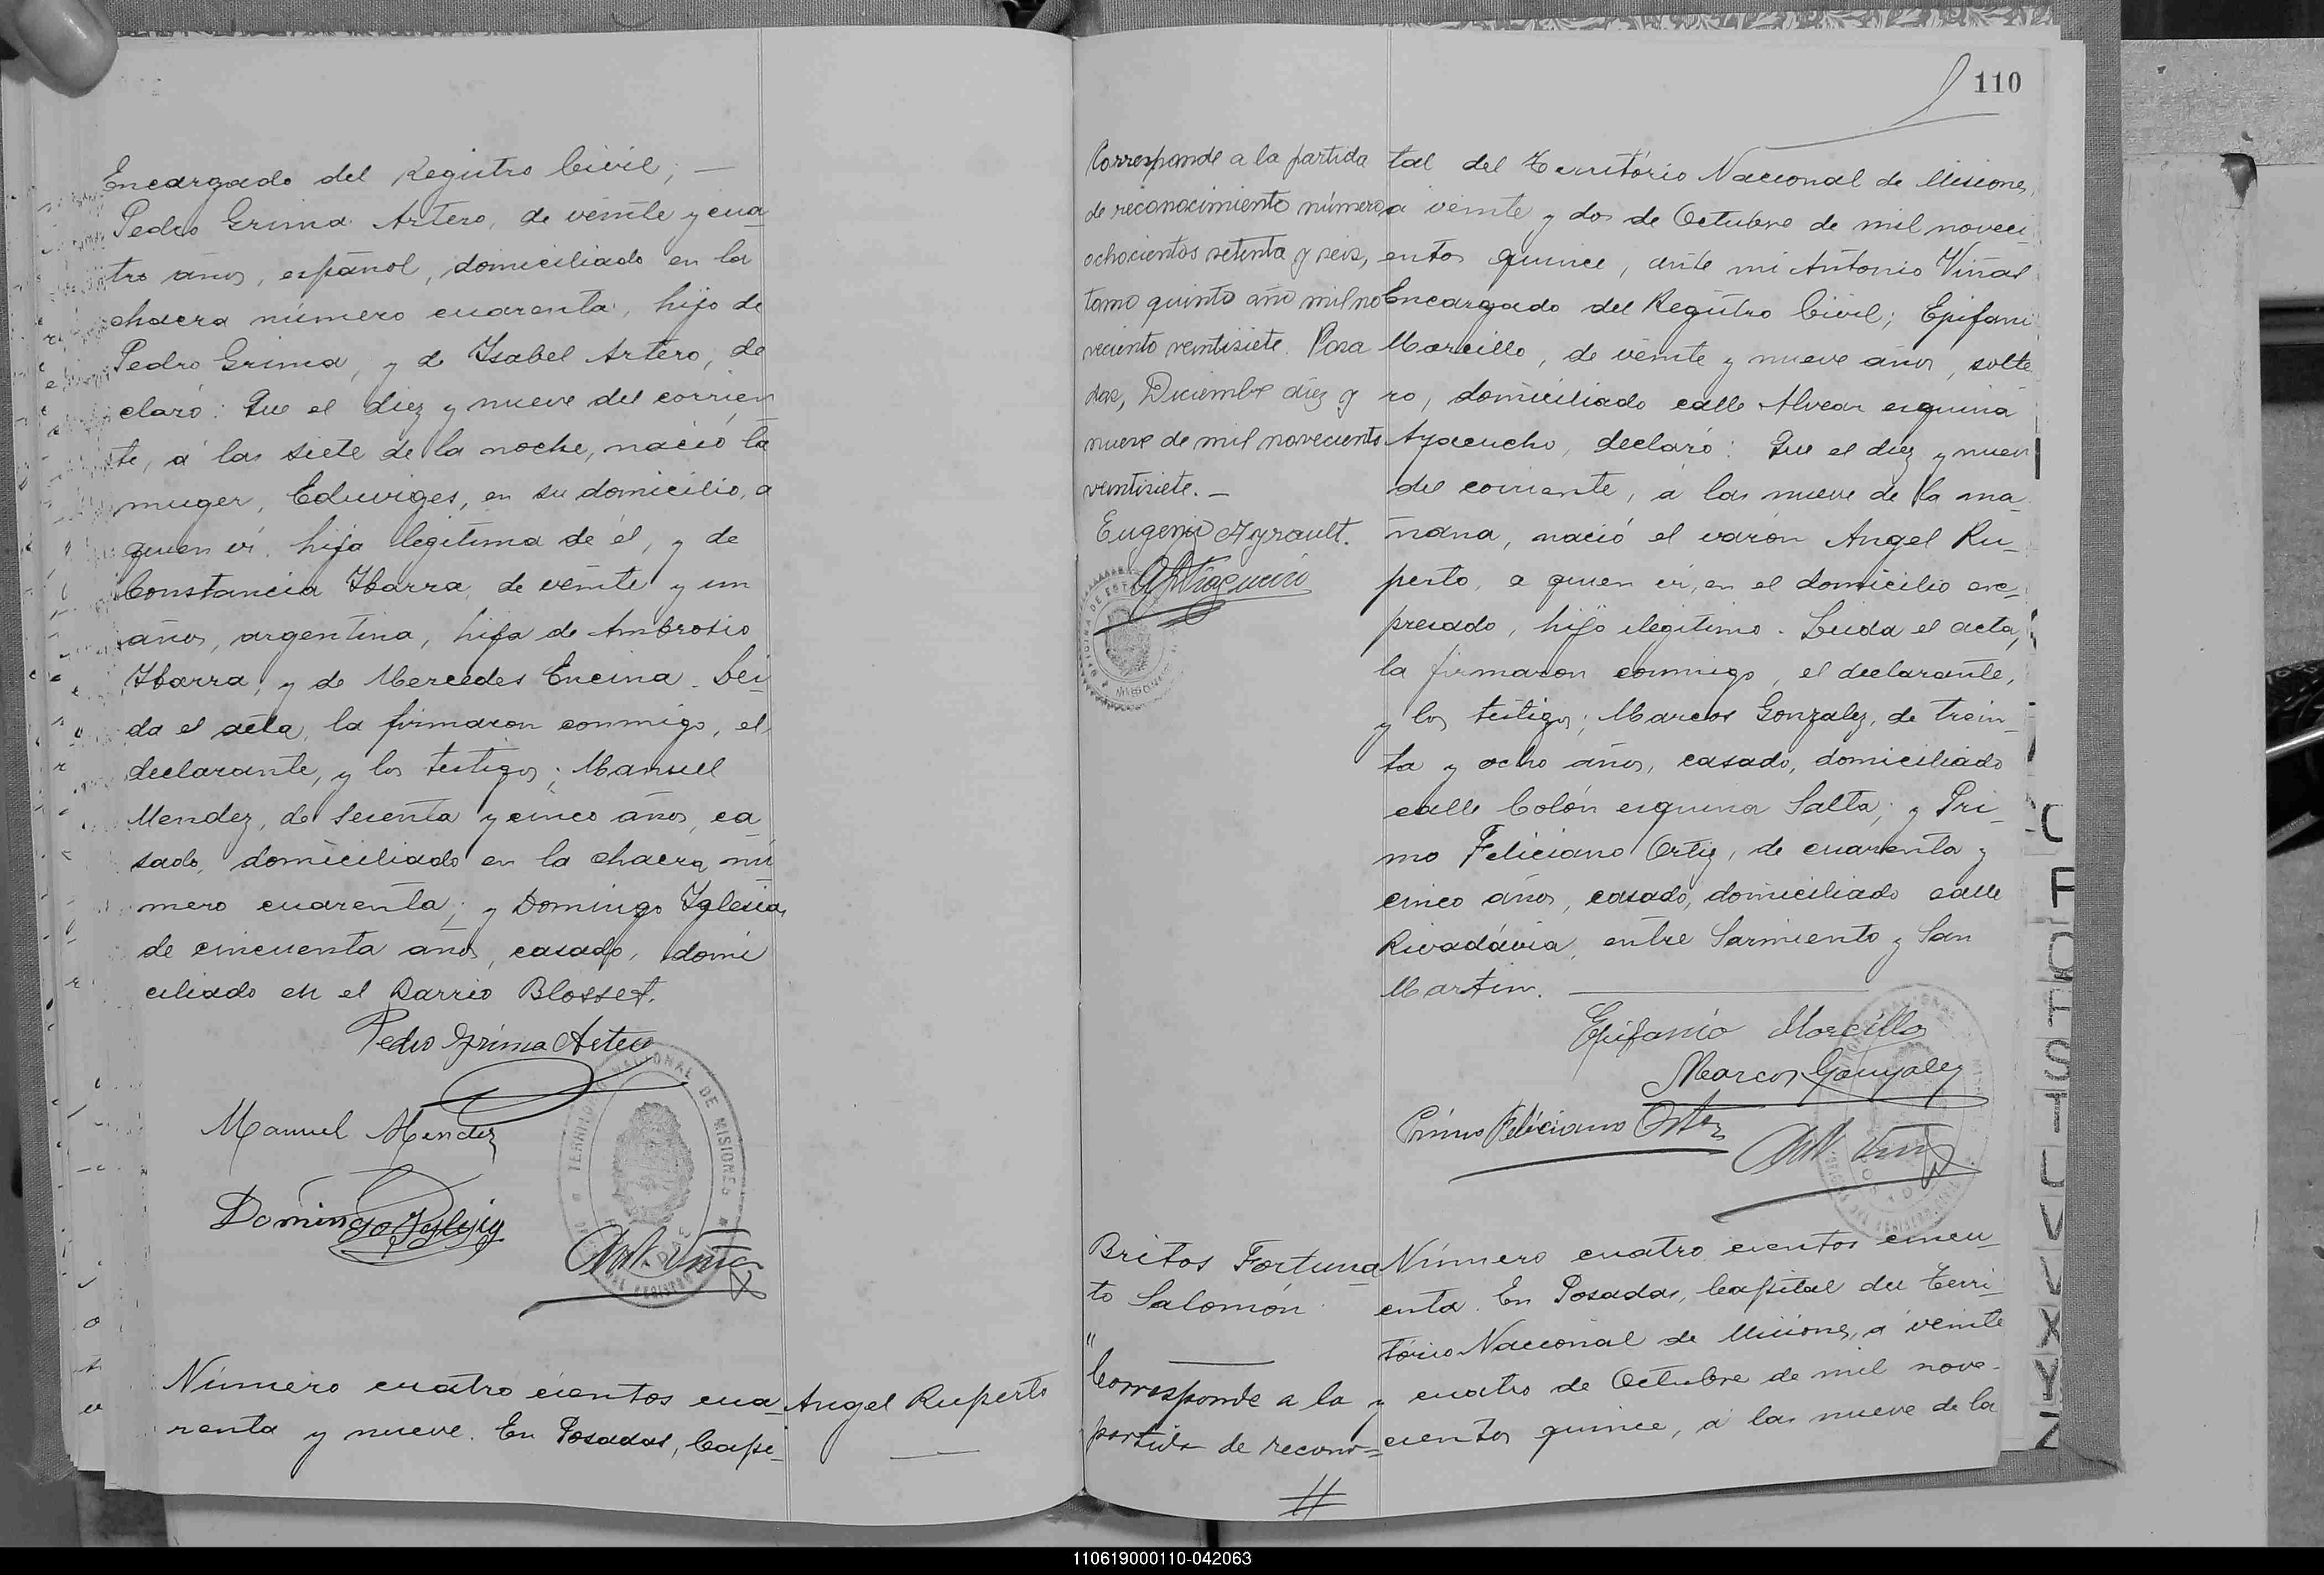 Encargado del Registro Civil; —
Pedro Grima Artero, de veinte y cua-
tro años, español, domiciliado en la
chacra número cuarenta, hijo de
Pedro Grima, y de Ysabel Artero, de
claró: Que el diez y nueve del corrien
te, á las siete de la noche, nació la
muger, Eduviges, en su domicilio, a
quien ví, hija legitima de él, y de
Constancia Ybarra, de veinte y un
años, argentina, hija de Ambrosio
Ybarra, y de Mercedes Encina. Lei-
da el acta, la firmaron conmigo, el
declarante, y los testigos; Manuel
Mendez, de secenta y cinco años, ca-
sado, domiciliado en la chacra nú-
mero cuarenta; y Domingo Yglesias,
de cincuenta años, casado, domi
ciliado en el Barrio Blosset.
Pedro Grima Artero
Manuel Mendez
Domingo Yglesia
TERRITORIO NACIONAL DE MISIONES
Número cuatro cientos cua-
renta y nueve. En Posadas, Capi-
Angel Ruperto
110
Corresponde a la partida
de reconocimiento número
ochocientos setenta y seis,
tomo quinto año mil no
veciento veintisiete. Posa
das, Diciembre diez y
nueve de mil noveciento
veintisiete. —
Eugenio Ayrault.
tal del Território Nacional de Misiones,
a veinte y dos de Octubre de mil noveci
entos quince, ante mi Antonio Viñas
Encargado del Registro Civil; Epifani
Morcillo, de veinte y nueve años, solte
ro, domiciliado calle Alvear esquina
Ayacucho, declaró: Que el diez y nuev
del corriente, á las nueve de la ma
ñana, nació el varón Angel Ru-
perto, a quien ví, en el domicilio exc-
presado, hijo ilegitimo. Leida el acta,
la firmaron conmigo, el declarante,
y los testigos; Marcos Gonzalez, de trein-
ta y ocho años, casado, domiciliado
calle Colón esquina Salta; y Pri-
mo Feliciano Ortiz, de cuarenta y
cinco años, casado, domiciliado calle
Rivadávia, entre Sarmiento y San
Martin.
Epifanio Morcillo
Marcos Gonzalez
Primo Feliciano Ortiz
Britos Fortuna
to Salomón
"
Corresponde a la
partida de recono=
#
Número cuatro cientos cincu-
enta. En Posadas, Capital del Terri-
tório Nacional de Misiones, á veinte
y cuatro de Octubre de mil nove-
cientos quince, á las nueve de la
110619000110-042063